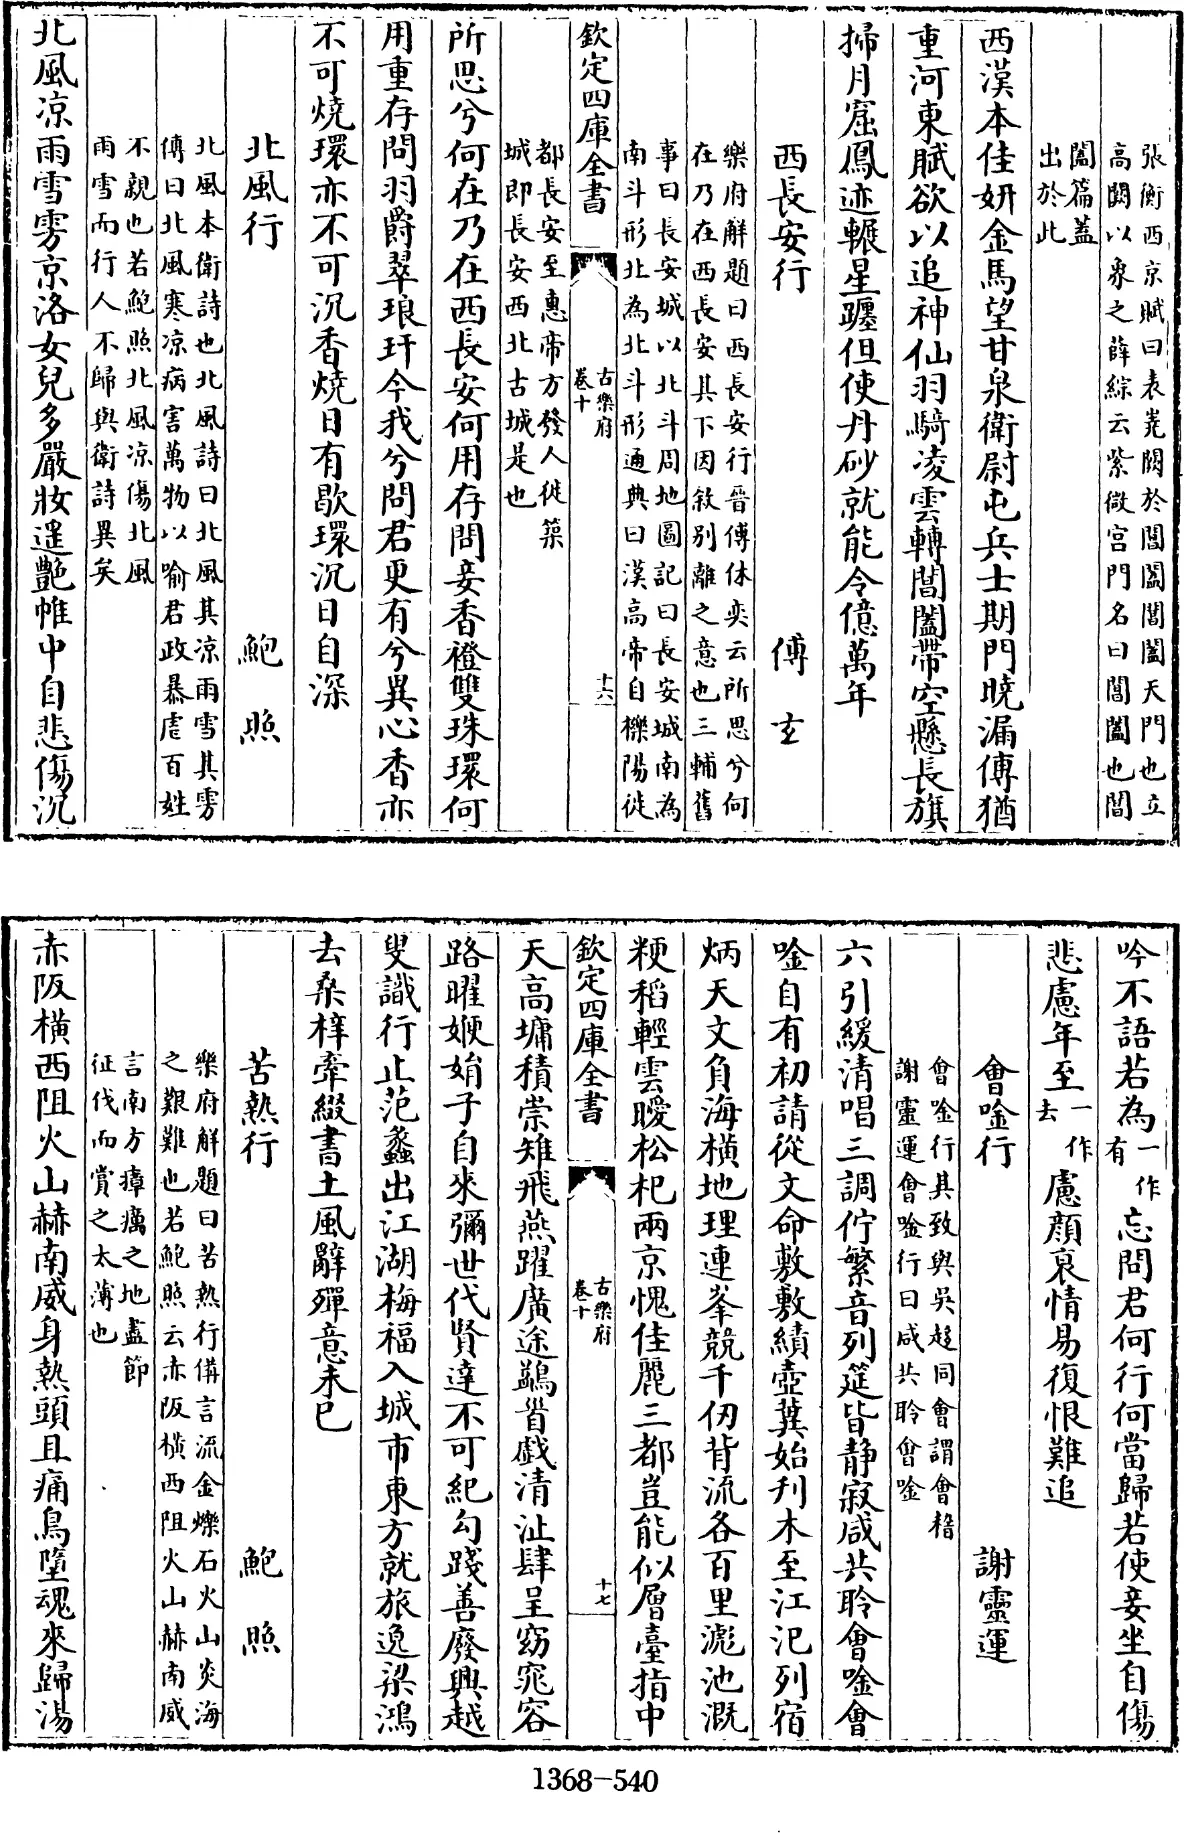 張衡西京賦曰表嶤闕於閶闔閶闔天門也立
高闕以象之薛綜云紫微宫門名曰閶闔也閶
闔篇蓋
出於此
西漢本佳妍金馬望甘泉衛尉屯兵士期門曉漏傳猶
重河東賦欲以追神仙羽騎凌雲轉閶闔帶空懸長旗
掃月窟鳳迹輾星躔但使丹砂就能令億萬年
西長安行 傅玄
樂府解題曰西長安行晉傅休奕云所思兮何
在乃在西長安其下因敘别離之意也三輔舊
事曰長安城以北斗周地圖記曰長安城南為
南斗形北為北斗形通典曰漢高帝自櫟陽徙
欽定四庫全書 古樂府 卷十 十六
都長安至惠帝方發人徙築
城即長安西北古城是也
所思兮何在乃在西長安何用存問妾香䙞雙珠環何
用重存問羽爵翠琅玕今我兮問君更有兮異心香亦
不可燒環亦不可沉香燒日有歇環沉日自深
北風行 鮑照
北風本衛詩也北風詩曰北風其凉雨雪其雱
傳曰北風寒凉病害萬物以喻君政暴虐百姓
不親也若鮑照北風凉傷北風
雨雪而行人不歸與衛詩異矣
北風凉雨雪雱京洛女兒多嚴妝遥艷帷中自悲傷沉
吟不語若為一作有忘問君何行何當歸若使妾坐自傷
悲慮年至一作去慮顔衰情易復恨難追
會唫行 謝靈運
會唫行其致與吳趨同會謂會稽
謝靈運會唫行曰咸共聆會唫
六引緩清唱三調佇繁音列筵皆静寂咸共聆會唫會
唫自有初請從文命敷敷績壺冀始刋木至江汜列宿
炳天文負海横地理連峯競千仞背流各百里滮池溉
粳稻輕雲曖松杞兩京愧佳麗三都豈能似層臺指中
欽定四庫全書 古樂府 卷十 十七
天高墉積崇雉飛燕躍廣途鷁首戲清沚肆呈窈窕容
路曜㛹娟子自來彌世代賢達不可紀勾踐善廢興越
叟識行止范蠡出江湖梅福入城市東方就旅逸梁鴻
去桑梓牽綴書土風辭殫意未已
苦熱行 鮑照
樂府解題曰苦熱行備言流金爍石火山炎海
之艱難也若鮑照云赤阪横西阻火山赫南威
言南方瘴癘之地盡節
征伐而賞之太薄也
赤阪横西阻火山赫南威身熱頭且痛鳥墮魂來歸湯
1368-540